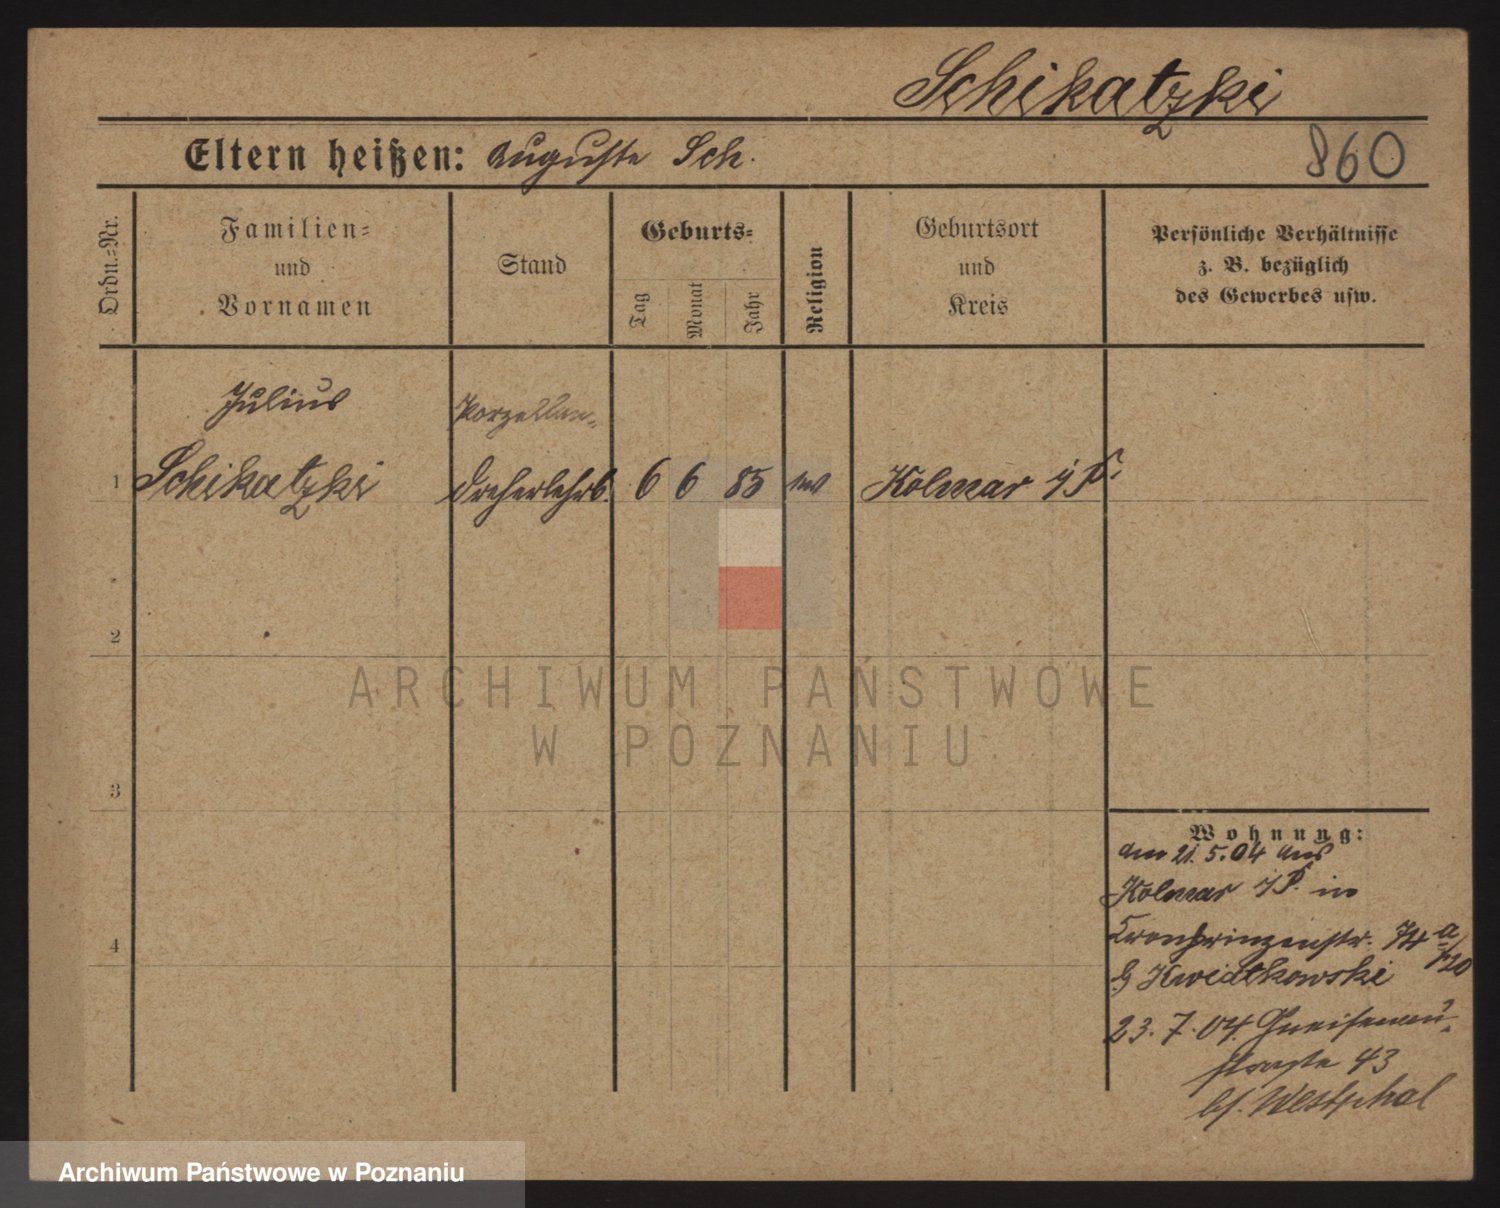 Schikatzki
Eltern heißen: Auguste Sch.
860
Ordn.=Nr.
Familien=
und
Vornamen
Stand
Geburts=
Tag
Monat
Jahr
Religion
Geburtsort
und
Kreis
Persönliche Verhältnisse
z. B. bezüglich
des Gewerbes usw.
Julius
Porzellan=
1 Schikatzki Dreherlehrl. 6 6 85 Kolmar i/P.
2
3
4
Wohnung:
am 21.5.04 aus
Kolmar i/P. in
Kronprinzenstr. 74 a
b/ Kwiatkowski
23.7.04. Gneisenau=
straße 43
bei Westphal
ARCHIWUM PAŃSTWOWE
W POZNANIU
Archiwum Państwowe w Poznaniu